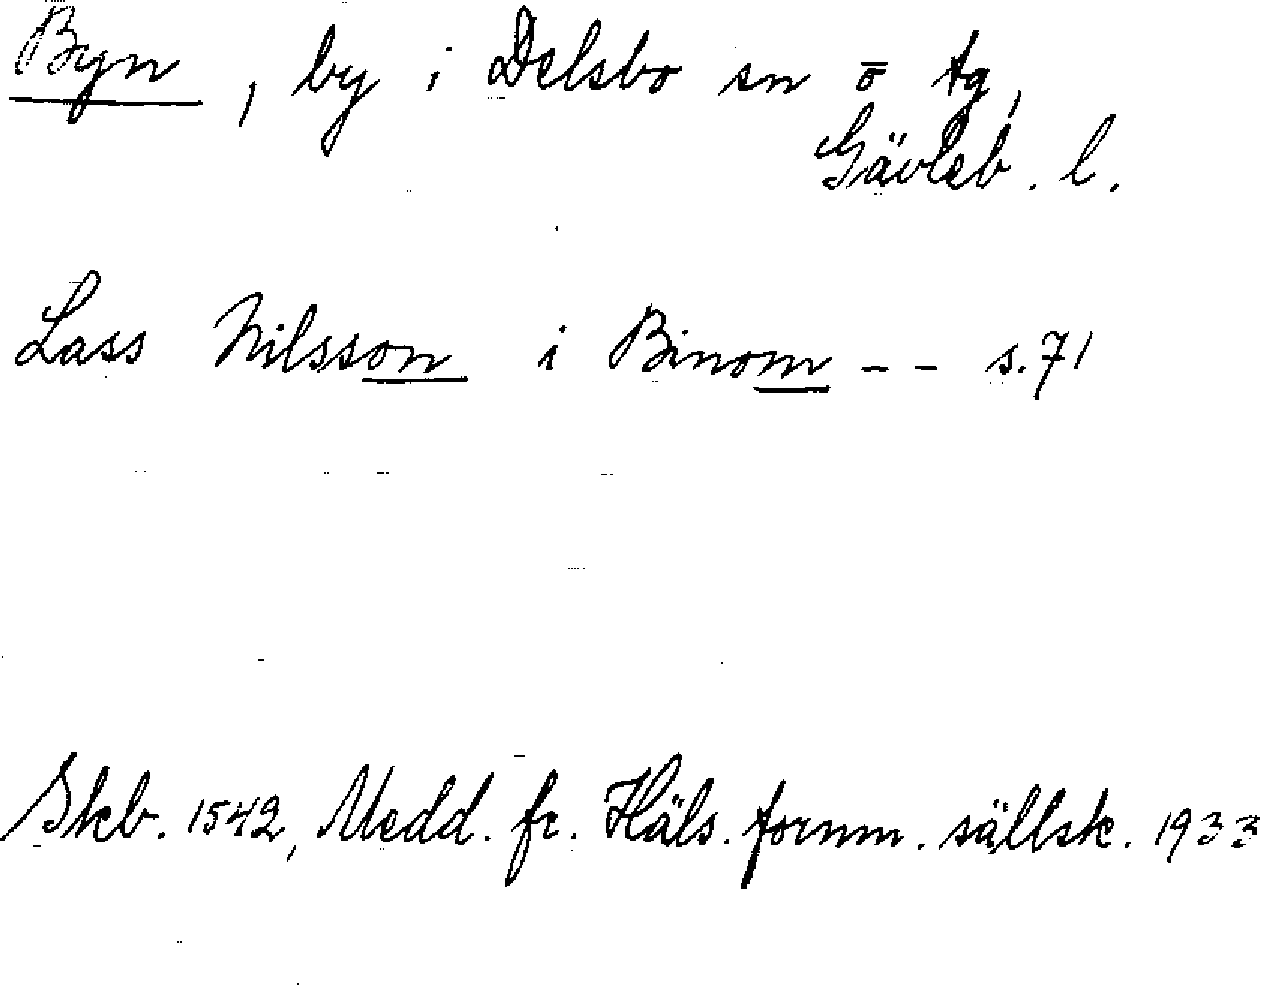 Byn, by i Delsbo sn o tg,
Gävleb. l.
Lass Nilsson i Binom -- s. 71
Skb. 1542, Medd. fr. Häls. fornm. sällsk. 1933